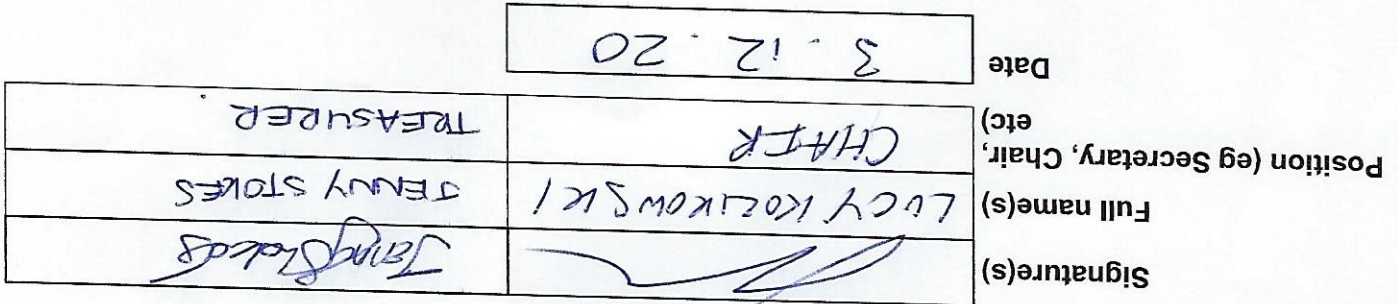 Signature(s) Jenny Stokes
Full name(s) LUCY KOZIKOWSKI JENNY STOKES
Position (eg Secretary, Chair, CHAIR TREASURER.
etc)
Date 3.12.20